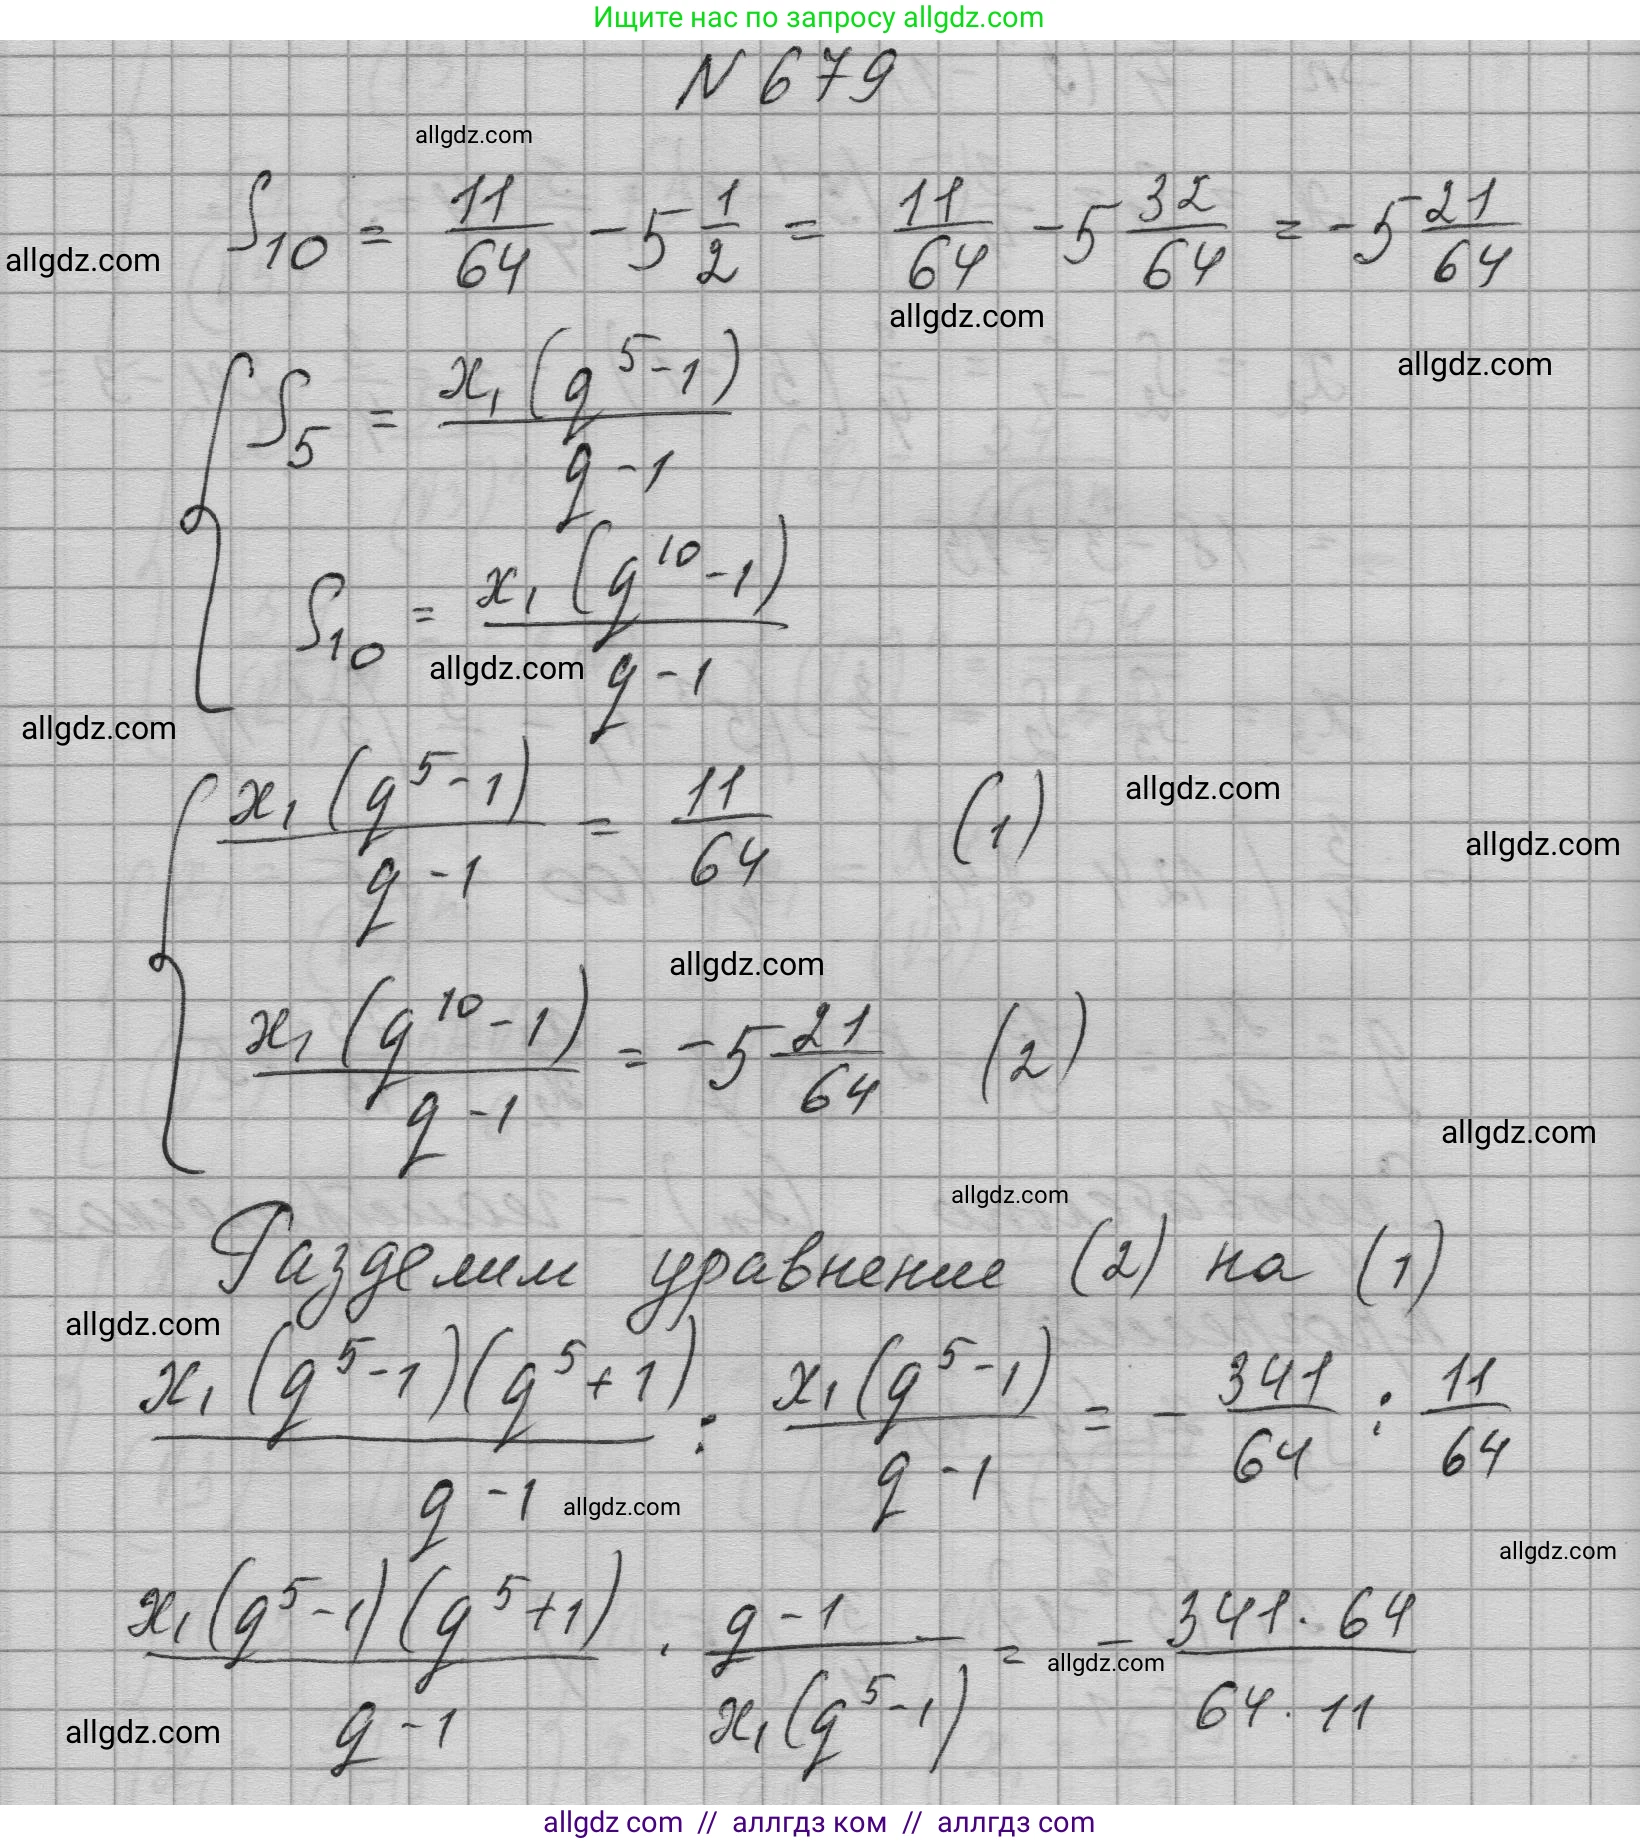 Ищите нас по запросу allgdz.com
N 679
allgdz.com
S₁₀ = 11/64 - 5 1/2 = 11/64 - 5 32/64 = -5 21/64
allgdz.com
allgdz.com
allgdz.com
{ S₅ = x₁(q⁵-1)/(q-1)
S₁₀ = x₁(q¹⁰-1)/(q-1)
allgdz.com
allgdz.com
{ x₁(q⁵-1)/(q-1) = 11/64 (1)
allgdz.com
allgdz.com
allgdz.com
x₁(q¹⁰-1)/(q-1) = -5 21/64 (2)
allgdz.com
allgdz.com
Разделим уравнение (2) на (1)
allgdz.com
x₁(q⁵-1)(q⁵+1)/(q-1) : x₁(q⁵-1)/(q-1) = - 341/64 : 11/64
allgdz.com
allgdz.com
x₁(q⁵-1)(q⁵+1)/(q-1) · (q-1)/(x₁(q⁵-1)) = - (341·64)/(64·11)
allgdz.com
allgdz.com
allgdz com // аллгдз ком // аллгдз com